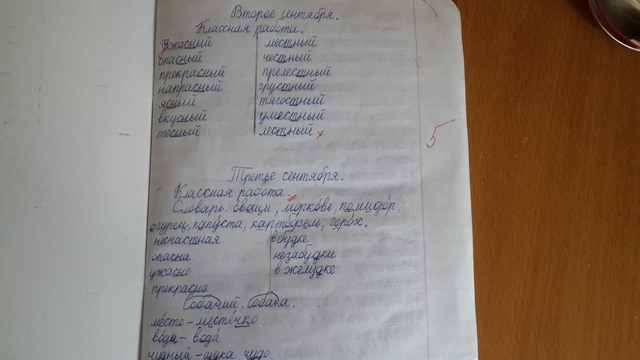 Второе сентября.
Классная работа.
ужасный местный
опасный честный
прекрасный прелестный
напрасный грустный
ясный тягостный
вкусный уместный
тесный лестный
5
Третье сентября.
Классная работа.
Словарь: овощи, морковь, помидор,
огурец, капуста, картофель, горох.
несчастная в будке
опасна незабудки
ужасно в желудке
прекрасна
Собачий, собака.
место – местечко
воды – вода
чудный – щука, чудо